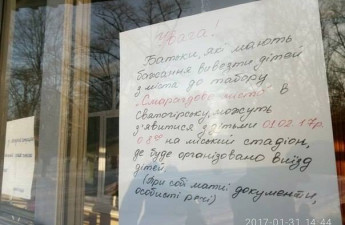 Увага!
Батьки, які мають
бажання вивезти дітей
з міста до табору
"Смарагдове місто" в
Святогірську, можуть
з'явитися з дітьми 01.02.17р.
о 8⁰⁰ на міський стадіон,
де буде організовано виїзд
дітей.
(При собі мати документи,
особисті речі)
2017-01-31 14:44